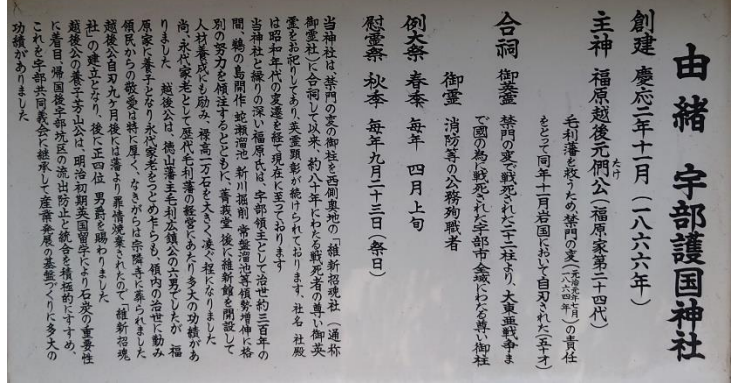 由緒 宇部護国神社
創建 慶応二年十一月(一八六六年)
主神 福原越後元僴公(福原家第二十四代)
たけ
毛利藩を救うため禁門の変(元治元年七月一八六四年)の責任
をとって同年十一月岩国において自刃された(五十才)
合祠 御英霊 禁門の変で戦死された二十二柱より、大東亜戦争ま
で國の為に戦死された宇部市全域にわたる尊い御柱
御霊 消防等の公務殉職者
例大祭 春季 毎年 四月上旬
慰霊祭 秋季 毎年九月二十三日(祭日)
当神社は、禁門の変の御柱を西側奥地の「維新招魂社」(通称
御霊社)に合祠して以来、約八十年にわたる戦死者の尊い御英
霊をお祀りしてあり、英霊顕彰が続けられております、社名 社殿
は昭和年代の変遷を経て現在に至っております
当神社と縁りの深い福原氏は、宇部領主として治世約三百年の
間、鵜の島開作 蛇瀬溜池 新川掘削 常盤溜池等領勢増伸に格
別の努力を傾注するとともに、菁莪堂 後に維新館を開設して
人材養成にも励み、禄高一万石を大きく凌ぐ程になりました
尚、永代家老として歴代毛利藩の経営にあたり多大の功績があ
りました 越後公は、徳山藩主毛利広鎮公の六男でしたが 福
原家に養子となり永代家老をつとめながらも、領内の治世に勤み
領民からの敬愛は特に厚く、なきがらは宗隣寺に葬られました
越後公自刃九ヶ月後には藩より罪情焼棄されたので「維新招魂
社」の建立となり、後に正四位 男爵を賜わりました
越後公の養子芳山公は、明治初期英国留学により石炭の重要性
に着目、帰国後宇部坑区の流出防止と統合を積極的にすすめ、
これを宇部共同義会に継承して産業発展の基盤づくりに多大の
功績がありました